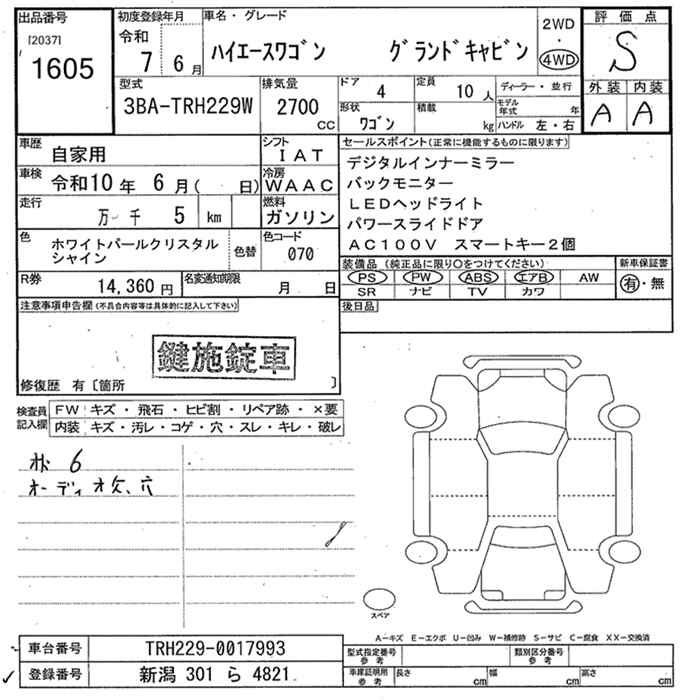 出品番号
[2037]
1605
初度登録年月
令和
7 6月
車名・グレード
ハイエースワゴン グランドキャビン
2WD
・
4WD
評価点
S
外装 内装
A A
型式
3BA-TRH229W
排気量
2700
CC
ドア
4
定員
10 人
形状
ワゴン
積載
kg
ディーラー・並行
モデル年式 年
ハンドル 左・右
車歴
自家用
シフト
IAT
車検
令和10年 6月( 日)
冷房
WAAC
走行
万 千 5 km
燃料
ガソリン
色
ホワイトパールクリスタル
シャイン
色替
色コード
070
R券
14,360円
名変通知期限
月 日
セールスポイント(正常に機能するものに限ります)
デジタルインナーミラー
バックモニター
LEDヘッドライト
パワースライドドア
AC100V スマートキー2個
装備品(純正品に限り○をつけてください)
PS PW ABS エアB AW
SR ナビ TV カワ
新車保証書
有・無
後日品
注意事項申告欄(不具合内容等は具体的に記入して下さい)
鍵施錠車
修復歴 有〔箇所 〕
検査員
記入欄
FW キズ・飛石・ヒビ割・リペア跡・×要
内装 キズ・汚レ・コゲ・穴・スレ・キレ・破レ
6
オーディオ欠、穴
スペア
A―キズ E―エクボ U―凹み W―補修跡 S―サビ C―腐食 XX―交換済
車台番号 TRH229-0017993
登録番号 新潟 301 ら 4821
型式指定番号
参考
類別区分番号
参考
車庫証明用
参考
長さ cm 幅 cm 高さ cm